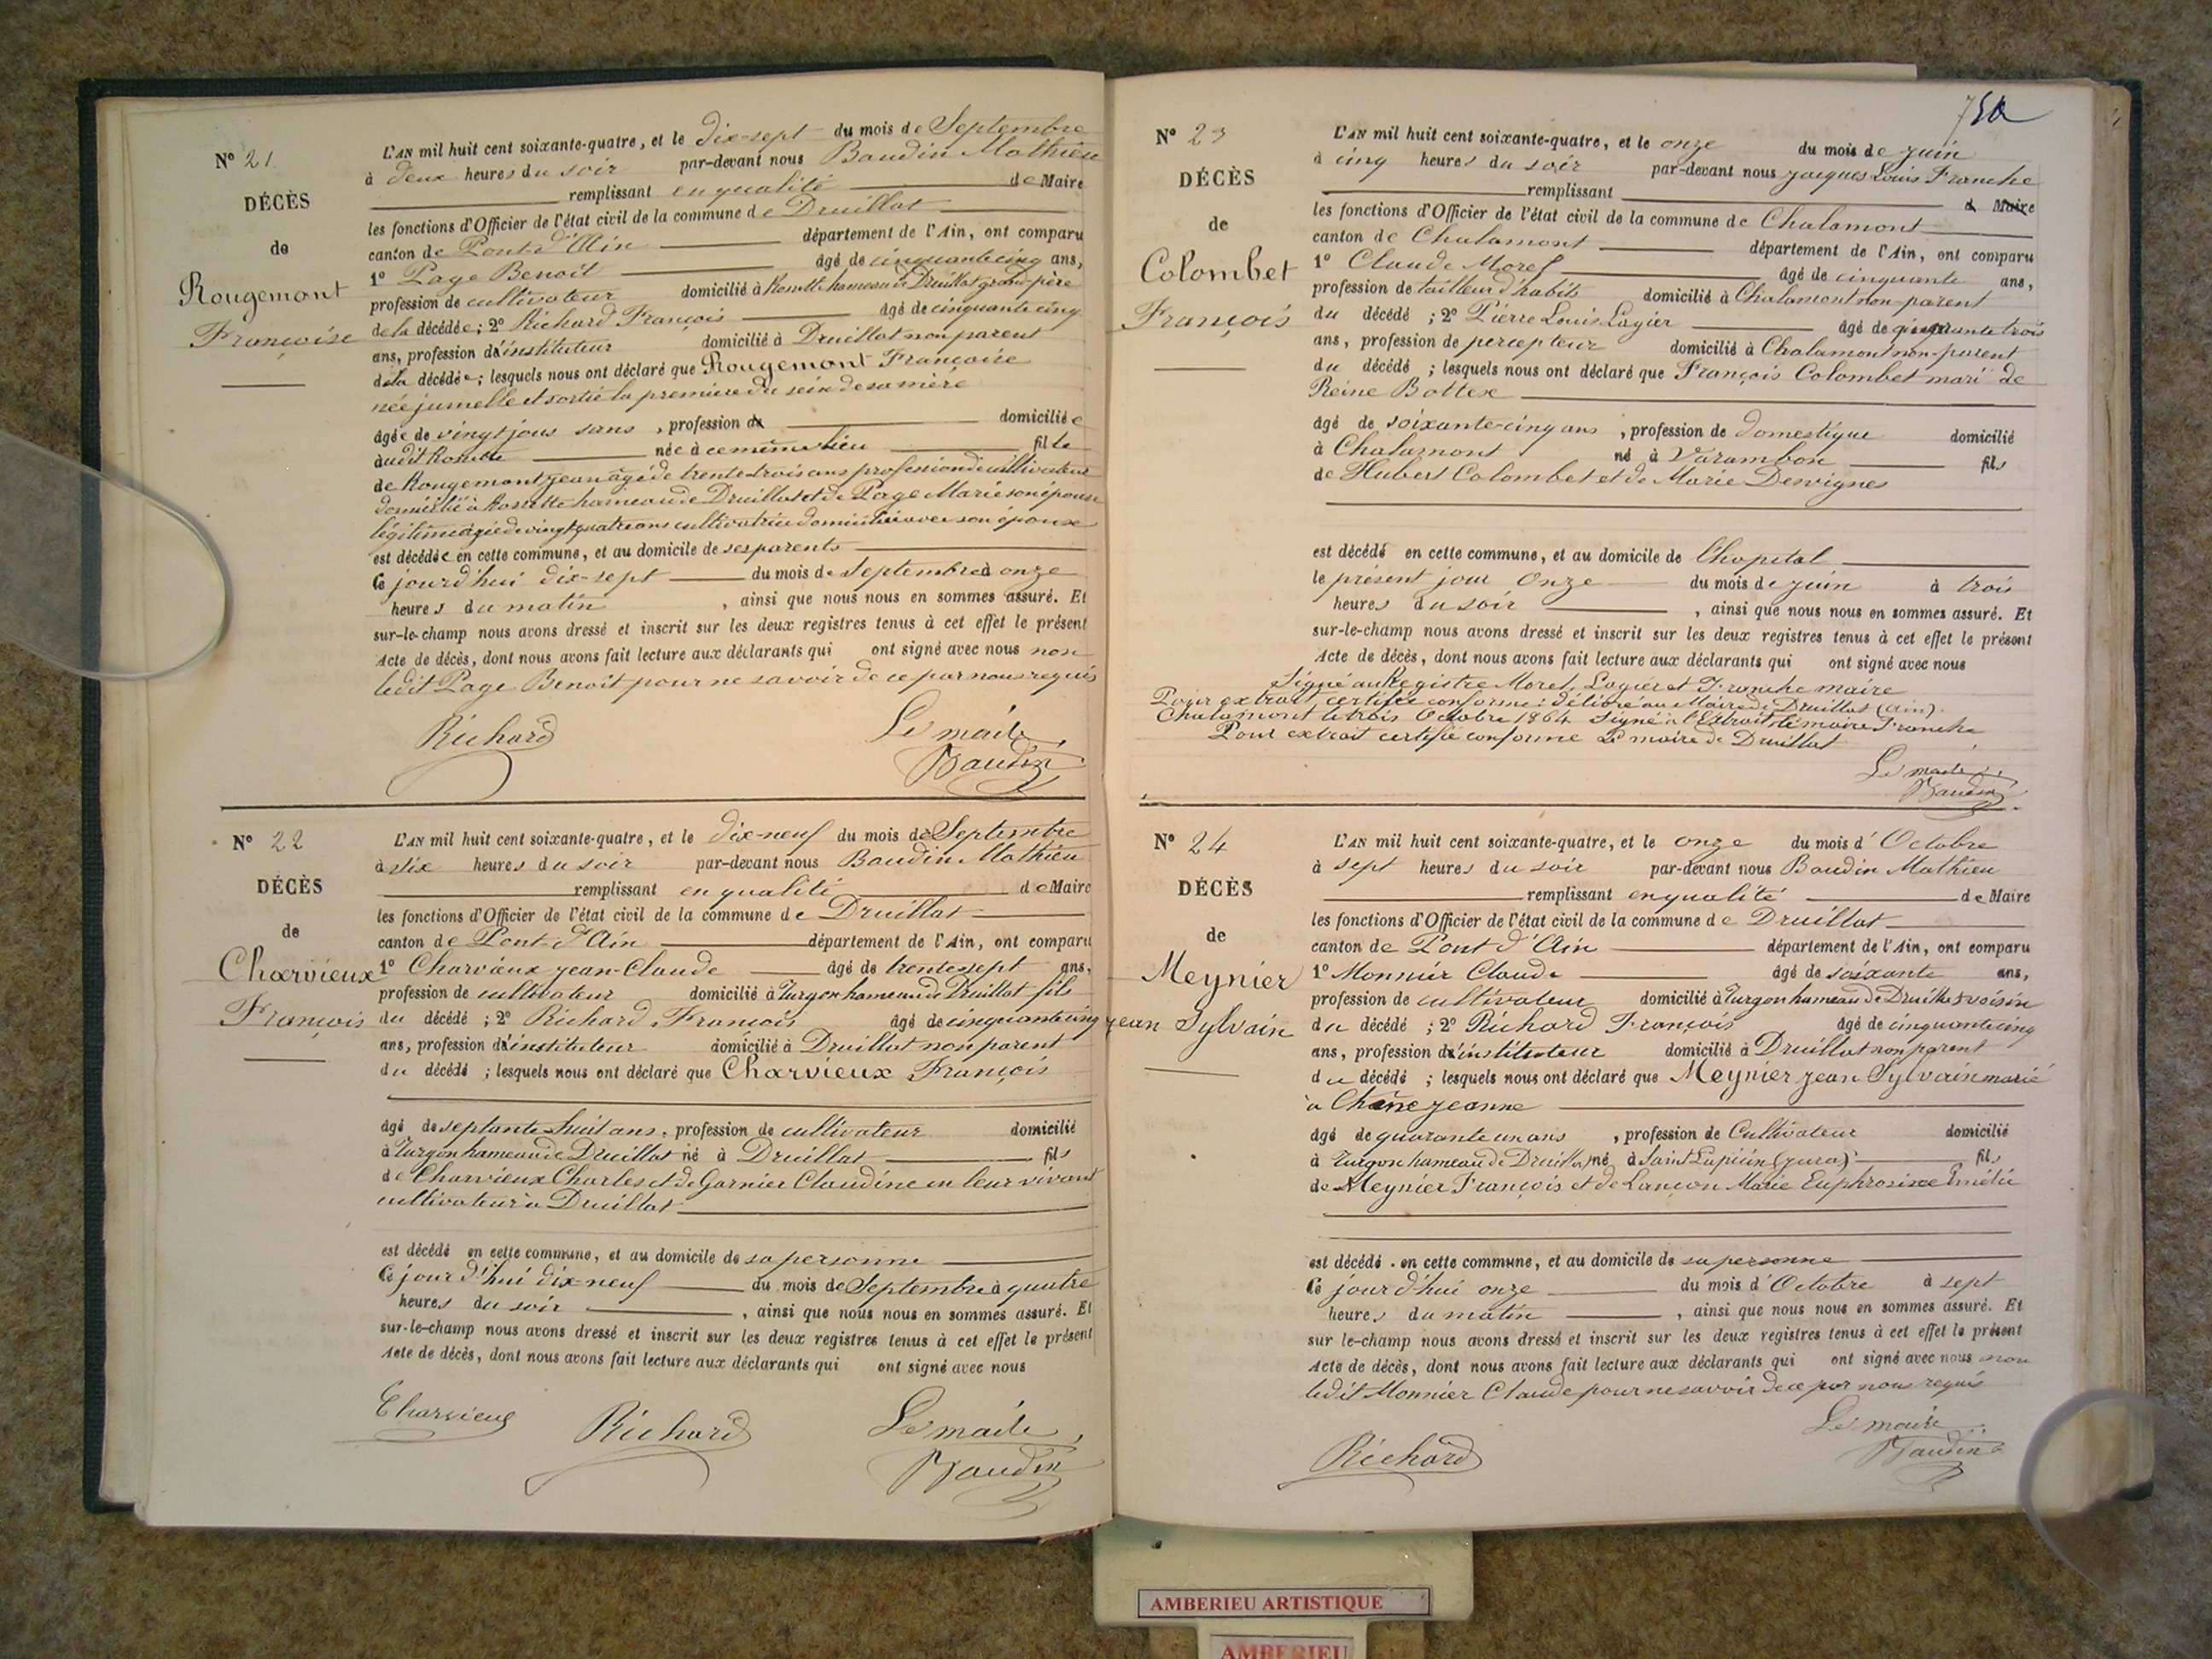 N° 21
DÉCÈS
de
Rougemont
Françoise
L'AN mil huit cent soixante-quatre, et le dix-sept du mois de Septembre
à deux heures du soir par-devant nous Baudin Mathieu
remplissant en qualité de Maire
les fonctions d'Officier de l'état civil de la commune de Druillat
canton de Pont-d'Ain département de l'Ain, ont comparu
1° Page Benoit âgé de cinquante cinq ans,
profession de cultivateur domicilié à Rossette hameau de Druillat grand-père
de la décédée; 2° Richard François âgé de cinquante cinq
ans, profession d'instituteur domicilié à Druillat non parent
de la décédée; lesquels nous ont déclaré que Rougemont Françoise
née jumelle et sortie la première du sein de sa mère
âgée de vingt jours sans, profession de domiciliée
audit Rossette née à ce même lieu fille
de Rougemont jean âgé de trente-trois ans profession de cultivateur
domicilié à Rossette hameau de Druillat et de Page Marie son épouse
légitime âgée de vingt quatre ans cultivatrice domiciliée avec son épouse
est décédée en cette commune, et au domicile de ses parents
Ce jourd'hui dix-sept du mois de Septembre à onze
heures du matin, ainsi que nous nous en sommes assuré. Et
sur-le-champ nous avons dressé et inscrit sur les deux registres tenus à cet effet le présent
Acte de décès, dont nous avons fait lecture aux déclarants qui ont signé avec nous non
ledit Page Benoit pour ne savoir de ce par nous requis
Richard Le maire
Baudin
N° 22
DÉCÈS
de
Charvieux
François
L'AN mil huit cent soixante-quatre, et le dix-neuf du mois de Septembre
à six heures du soir par-devant nous Baudin Mathieu
remplissant en qualité de Maire
les fonctions d'Officier de l'état civil de la commune de Druillat
canton de Pont-d'Ain département de l'Ain, ont comparu
1° Charvieux jean-Claude âgé de trente sept ans,
profession de cultivateur domicilié à Turgon hameau de Druillat fils
du décédé; 2° Richard François âgé de cinquante cinq
ans, profession d'instituteur domicilié à Druillat non parent
du décédé; lesquels nous ont déclaré que Charvieux François
âgé de septante huit ans, profession de cultivateur domicilié
à Turgon hameau de Druillat né à Druillat fils
de Charvieux Charles et de Garnier Claudine en leur vivant
cultivateur à Druillat
est décédé en cette commune, et au domicile de sa personne
Ce jour d'hui dix-neuf du mois de Septembre à quatre
heures du soir, ainsi que nous nous en sommes assuré. Et
sur-le-champ nous avons dressé et inscrit sur les deux registres tenus à cet effet le présent
Acte de décès, dont nous avons fait lecture aux déclarants qui ont signé avec nous
Charvieux Richard Le maire
Baudin
N° 23
DÉCÈS
de
Colombet
François
L'AN mil huit cent soixante-quatre, et le onze du mois de juin
à cinq heures du soir par-devant nous jacques Louis Franche
remplissant d Maire
les fonctions d'Officier de l'état civil de la commune de Chalamont
canton de Chalamont département de l'Ain, ont comparu
1° Claude Morel âgé de cinquante ans,
profession de tailleur d'habits domicilié à Chalamont non-parent
du décédé; 2° Pierre Louis Lagier âgé de cinquante trois
ans, profession de percepteur domicilié à Chalamont non-parent
du décédé; lesquels nous ont déclaré que François Colombet mari de
Reine Bottex
âgé de soixante-cinq ans, profession de domestique domicilié
à Chalamont né à Varambon fils
de Hubert Colombet et de Marie Desvignes
est décédé en cette commune, et au domicile de l'hopital
le présent jour onze du mois de juin à trois
heures du soir, ainsi que nous nous en sommes assuré. Et
sur-le-champ nous avons dressé et inscrit sur les deux registres tenus à cet effet le présent
Acte de décès, dont nous avons fait lecture aux déclarants qui ont signé avec nous
Signé au Registre Morel, Lagier et Franche maire
Pour extrait certifié conforme: délibré au Maire de Druillat (Ain).
Chalamont le trois Octobre 1864 Signé à l'Extrait le maire Franche
Pour extrait certifié conforme Le maire de Druillat
Le maire
Baudin
N° 24
DÉCÈS
de
Meynier
jean Sylvain
L'AN mil huit cent soixante-quatre, et le onze du mois d'Octobre
à sept heures du soir par-devant nous Baudin Mathieu
remplissant en qualité de Maire
les fonctions d'Officier de l'état civil de la commune de Druillat
canton de Pont d'Ain département de l'Ain, ont comparu
1° Monnier Claude âgé de soixante ans,
profession de cultivateur domicilié à Turgon hameau de Druillat voisin
du décédé; 2° Richard François âgé de cinquante cinq
ans, profession d'instituteur domicilié à Druillat non parent
du décédé; lesquels nous ont déclaré que Meynier jean Sylvain marié
à Chêne jeanne
âgé de quarante un ans, profession de Cultivateur domicilié
à Turgon hameau de Druillat, né à Saint Lupicin (jura) fils
de Meynier François et de Lançon Marie Euphrosine Emélie
est décédé en cette commune, et au domicile de sa personne
Ce jour d'hui onze du mois d'Octobre à sept
heures du matin, ainsi que nous nous en sommes assuré. Et
sur le-champ nous avons dressé et inscrit sur les deux registres tenus à cet effet le présent
Acte de décès, dont nous avons fait lecture aux déclarants qui ont signé avec nous non
ledit Monnier Claude pour ne savoir de ce par nous requis
Le maire
Richard Baudin
AMBERIEU ARTISTIQUE
AMBERIEU